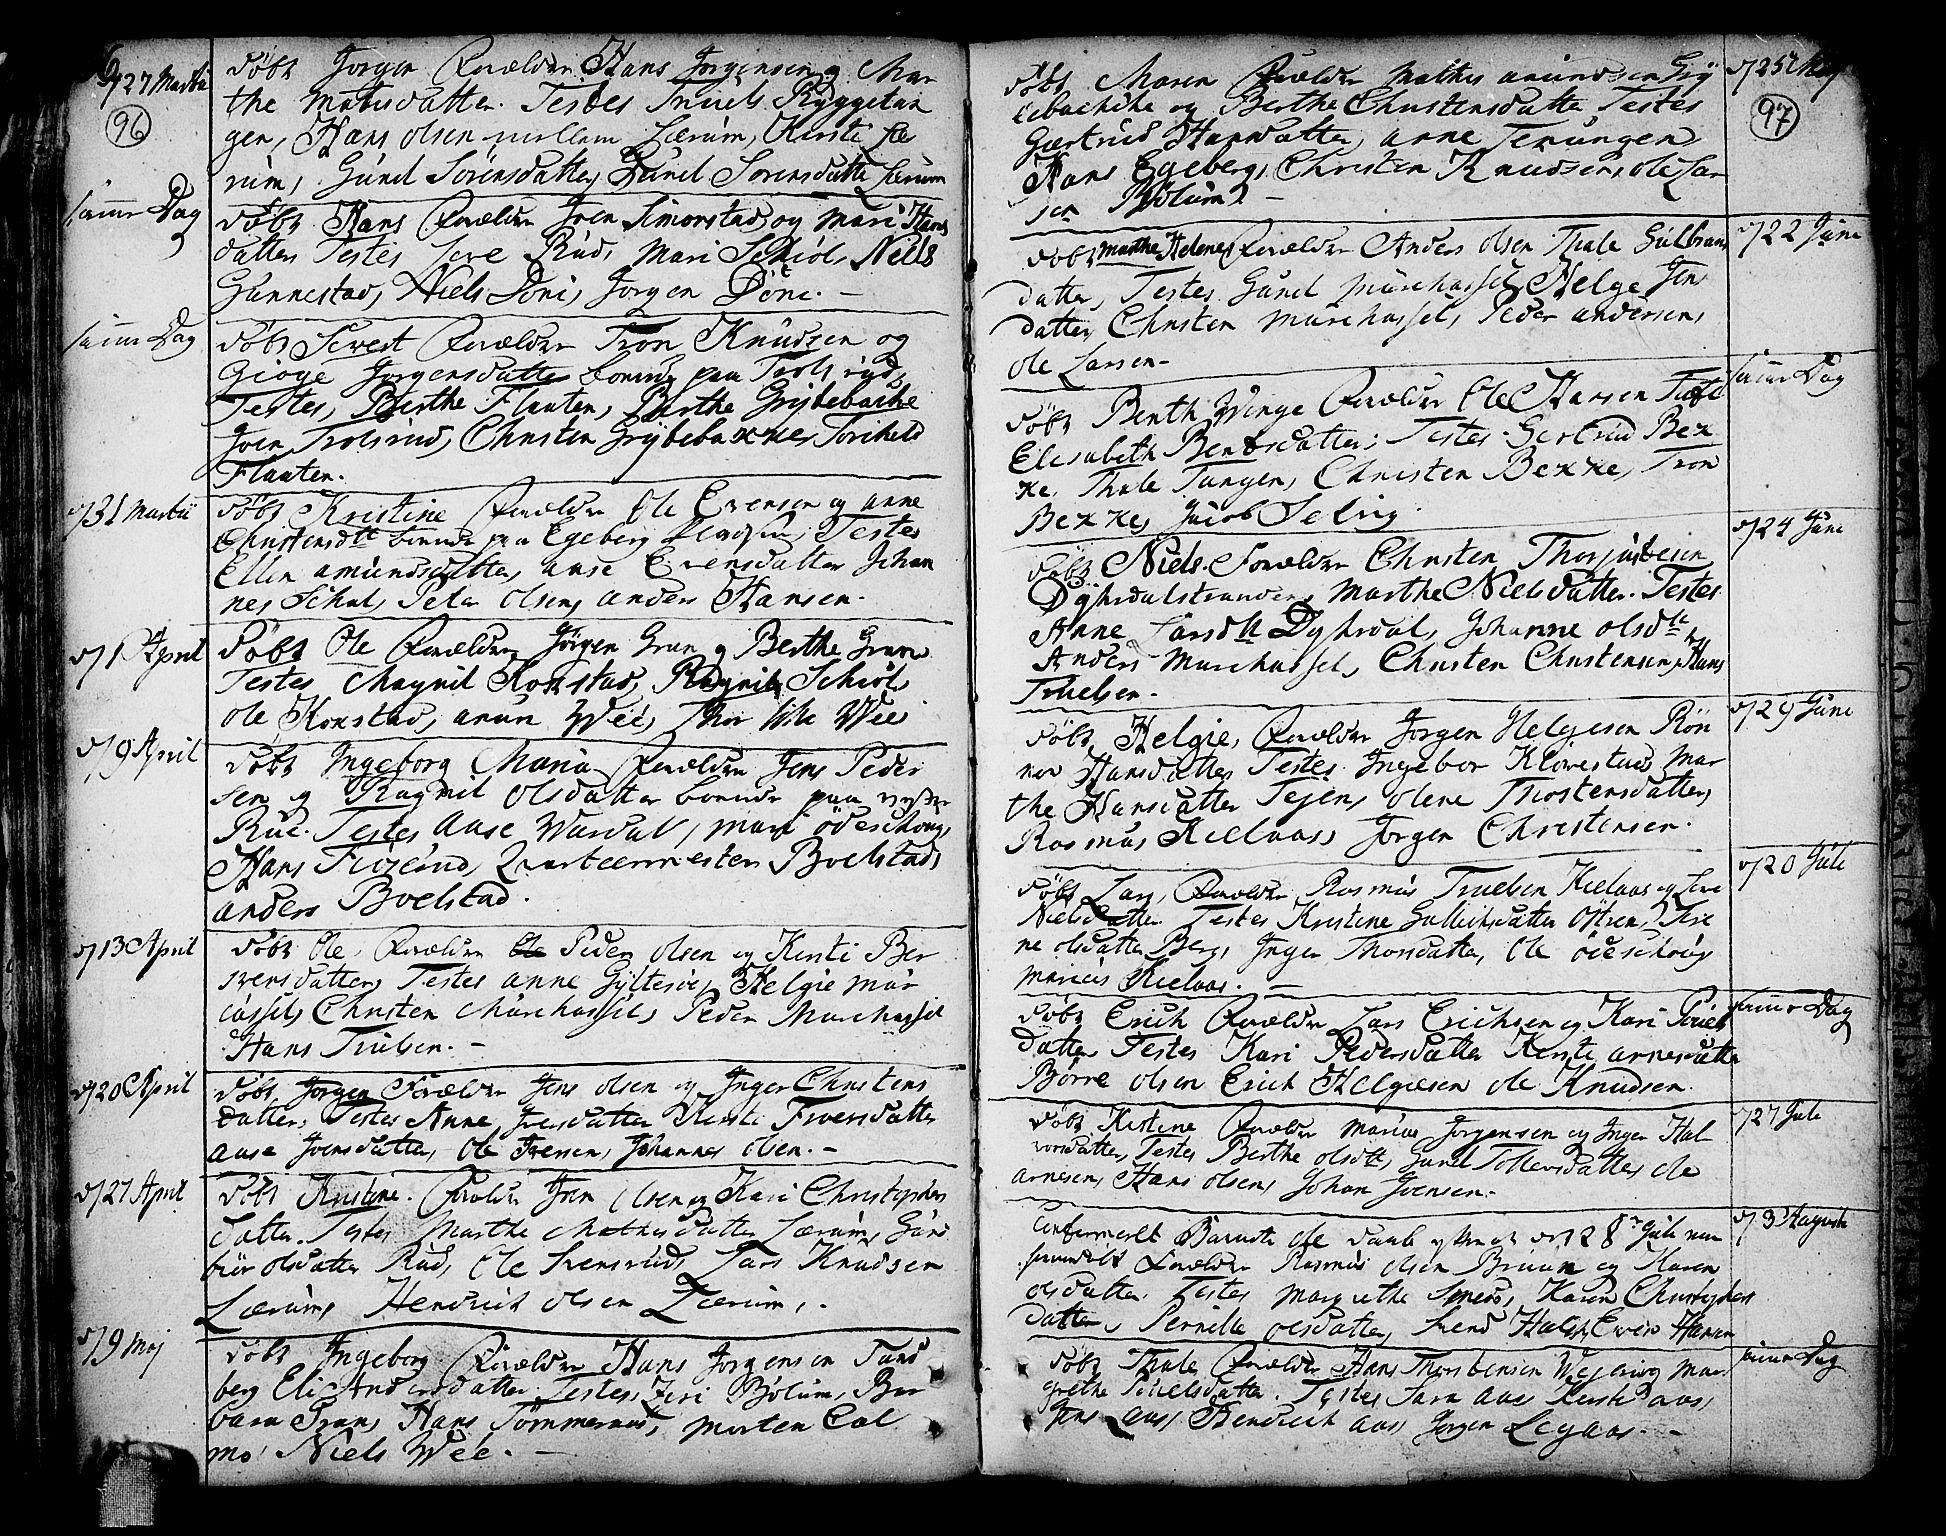 96
d 27 Martii
döbt Jørgen Forældre Hans Jørgensen og Mar
the Matisdatter. Testes Truels Ryggetan
gen, Hans Olsen millem Lærum, Kirsti Læ
rum, Gunel Sörensdatter, Gunel Sorensdatter Lærum
samme Dag
döbt Hans Forældre Iver Simonstad og Mari Hans
datter Testes Rud, Mari Schiöl, Niels
Gunnestad, Niels Döni, Jørgen Döne. –
samme Dag
döbt Sevest Forældre Tron Knudsen og
Giöge Jørgensdatter boende paa Trolsrud,
Testes, Berthe Flaaten, Berthe Grytebache
Joen Trolsrud, Christen Grytebakke, Torikeld
Flaaten.
d 31 Martii
döbt Kristine Forældre Ole Evensen og Anne
Christensdtr boende paa Egeberg Testes
Ellen Amundsdatter, Aase Evensdatter Johan
nes Schul, Peter Olsen, Anders Hansen.
d 1 April
Döbt Ole Forældre Jørgen Gran og Berthe Gran
Testes Magnil Kokstad, Ragnil Schiöl,
Ole Kokstad, Amun Wee, Thor lille Wee
d 9 April
döbt Ingeborg Maria Forældre Jens Peder
sen og Ragnil Olsdatter boende paa
Rue. Testes Aase Wardal, Mari Ödeschoug,
Hans Qvarteermester Boelstad,
Anders Boelstad.
d 13 April
döbt Ole, Forældre Ole Peder Olsen og Kirsti Ber
svensdatter, Testes Anne Gyltesöe, Helgie Mör
casset, Christen Mörchasset, Peder Morchasset
Hans Trulsen. –
d 20 April
döbt Jørgen Forældre Jens Olsen og Inger Christens
datter, Testes Anne Jensdatter Kirsti Iversdatter
Aase Joensdatter, Ole Iversen, Johannes Olsen. –
d 27 April
döbt Kristine. Forældre Iver Olsen og Kari Christophers
datter. Testes Marthe Mathisdatter Lærum, Guri
Olsdatter Rud, Ole Svensrud, Lars Knudsen
Lærum, Hendrich Olsen Lærum.
d 9 Maj
döbt Ingeborg Forældre Hans Jørgensen Sand
berg Eli Andersdatter. Testes, Zeri Bjölum, Bar
bara Tran, Hans Tömmeraas, Morten Col
mo Niels Wee. –
d 25 Maj
97
döbt Maren Forældre Mathis Amundsen Gry
tebachike og Berthe Christensdatter Testes
Gertrud Hansdatter, Anne Tenungen
Hans Egeberg, Christen Knudsen, Ole Lar
sen Bjölum. –
d 22 Juni
döbt Marthe Helene Forældre Anders Olsen Thale Gulbrans
datter, Testes Gunel Murchasset, Helge Jens
datter, Christen Murchasset, Peder Andersen,
Ole Larsen. –
samme Dag
döbt Berth Winge Forældre Ole Hansen Tufte
Elisabeth Bentsdatter; Testes Gertrud Bek
ke, Thale Tangen, Christen Bekke, Tron
Bekke, Jacob Selvig.
d 24 Juni
döbt Niels. Forældre Christen Thorjusdesen
Dyhrdalstranden, Marthe Nielsdatter. Testes
Anne Larsdtr Dyhrdal, Johanne Olsdtr
Anders Murchasset, Christen Christensen, Hans
Truelsen.
d 29 Juni
döbt Helgie, Forældre Jørgen Helgesen Rön
nov Hansdatter Testes Ingebor Klovestad, Mar
the Hansdatter Tejen, Olene Thostensdatter,
Rasmus Kielaas, Jørgen Christensen.
d 20 Juli
döbt Lars, Forældre Rasmus Truelsen Kielaas og Sere
Nielsdatter. Testes Kristine Gullichsdatter Östren, Sire
ne Olsdatter Berg, Inger Thorsdatter, Ole Ödeschoug
Marius Kielaas. –
samme Dag
döbt Erich Forældre Lars Erichsen og Kari Povels
datter Testes Kari Pedersdatter Kirsti Arnesdatter
Börre Olsen Erich Helgiesen Ole Knudsen.
d 27 Juli
döbt Kirstine Forældre Marius Jørgensen og Inger Hal
vorsdatter, Testes Berthe Olsdtr, Gunel Tollevsdatter, Ole
Arnesen, Hans Olsen, Johan Joensen.
d 3 Augusti
Confirmerit Barnets daab den 28 Juli
Forældre Rasmus Olsen Bruun og Karen
Olsdatter Testes Margrethe Smed, Karen Christophers
datter, Pernille Olsdatter, Svend Hals, Even Hanen
samme Dag
döbt Thale Forældre Hans Thorstensen Wejering Mar
grethe Povelsdatter. Testes Sara Aas Kirsti Aas,
Jens Aas, Hendrich Aas, Jørgen Legaas. –